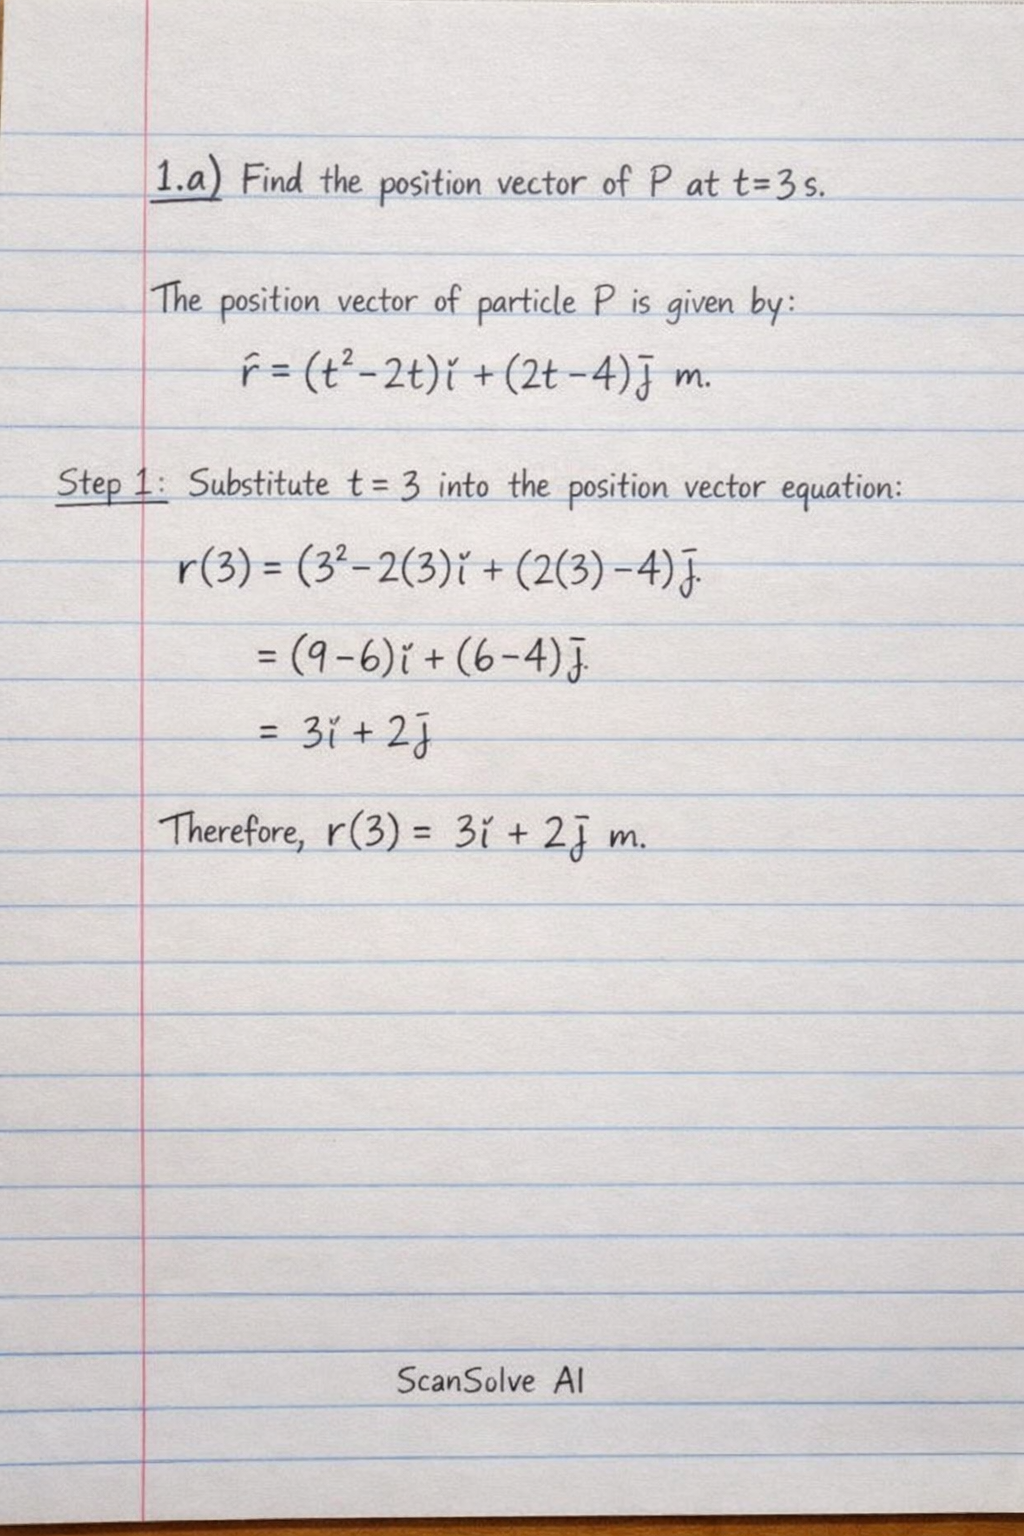 1.a) Find the position vector of P at t=3s.
The position vector of particle P is given by:
r̂ = (t²-2t)ǐ + (2t-4)j̄ m.
Step 1: Substitute t = 3 into the position vector equation:
r(3) = (3²-2(3)ǐ + (2(3)-4)j̄.
= (9-6)ǐ + (6-4)j̄.
= 3ǐ + 2j̄
Therefore, r(3) = 3ǐ + 2j̄ m.
ScanSolve AI